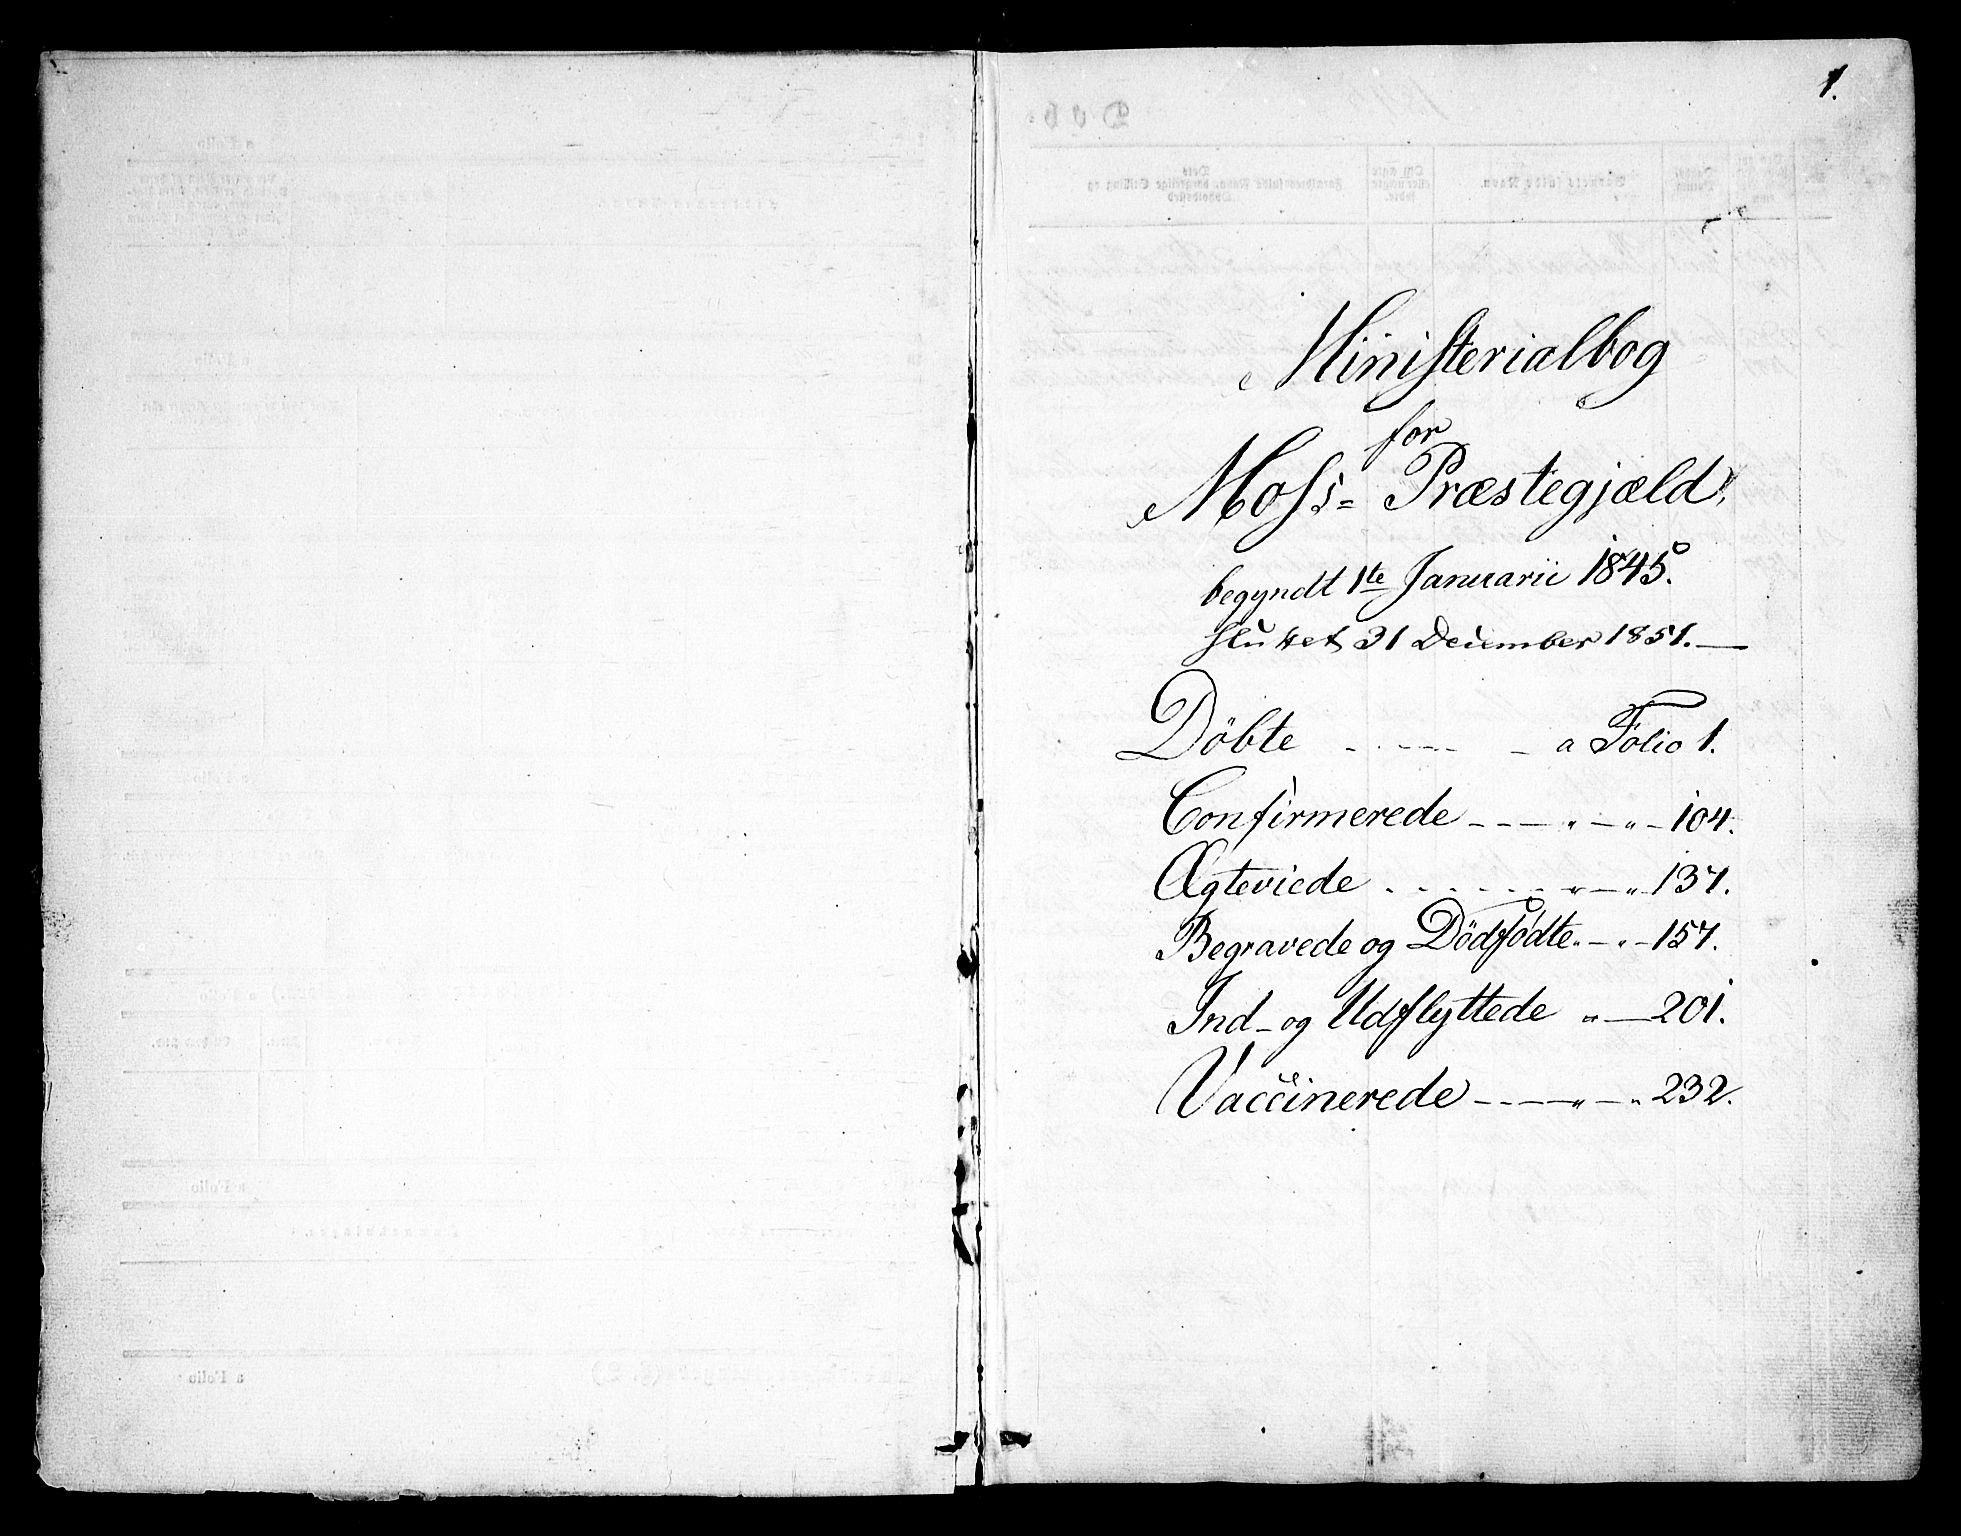 1.
Ministerialbog
for
Moss= Præstegjæld,
begyndt 1te Januarii 1845.
sluttet 31 December 1851.—
Döbte - - - - - - a Folio 1.
Confirmerede - - - „ - „ - 104.
Ægteviede . - - - - - „ - „ - 137.
Begravede og Dödfödte „ - „ - 157.
Ind- og Udflyttede „ — 201.
Vaccinerede - - - „ - „ 232.